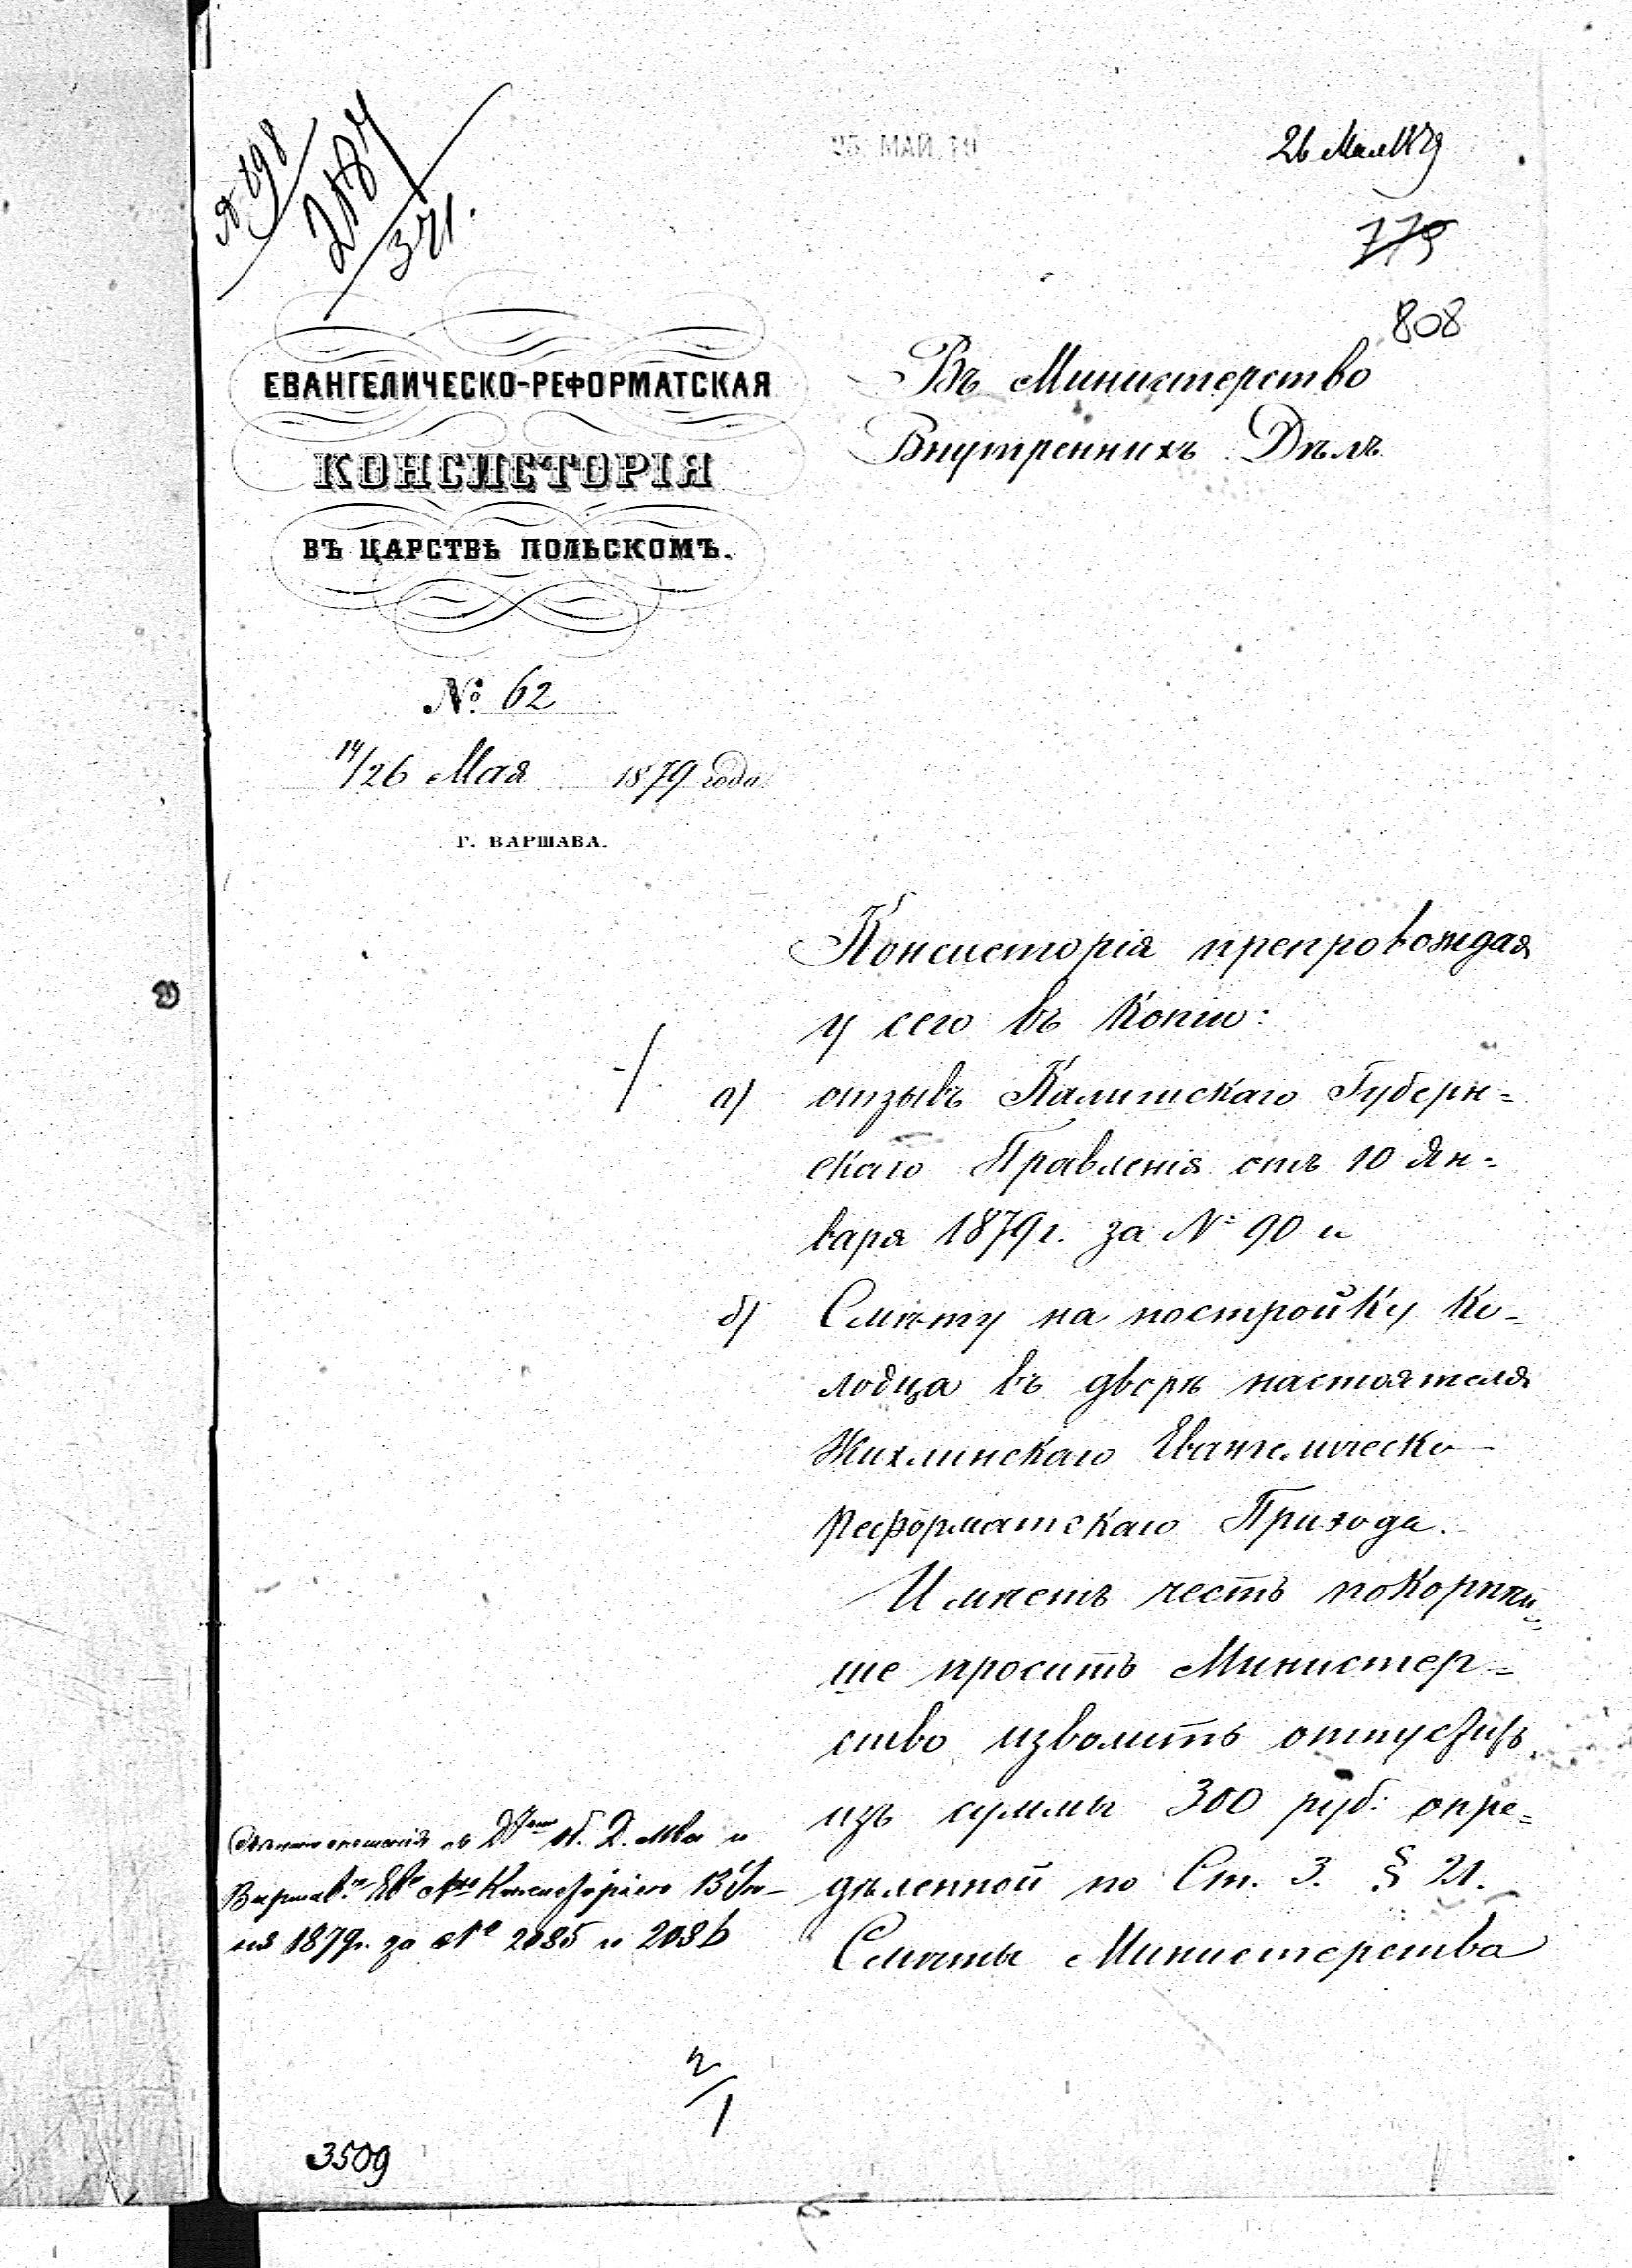 № 898
2187
371.
25 МАЙ 79
26 Мая 1879
775
808
ЕВАНГЕЛИЧЕСКО-РЕФОРМАТСКАЯ
КОНСИСТОРІЯ
ВЪ ЦАРСТВѢ ПОЛЬСКОМЪ.
№ 62
14/26 Мая 1879 года
Г. ВАРШАВА.
Въ Министерство
Внутреннихъ Дѣлъ.
Консисторія препровождая
у сего въ копіи:
а) отзывъ Калишскаго Губерн=
скаго Правленія отъ 10 Ян=
варя 1879 г. за № 90 и
б) Смѣту на постройку ко=
лодца въ дворѣ настоятеля
Жихлинскаго Евангелическо
Реформатскаго Прихода.
Имѣетъ честь покорнѣй=
ше проситъ Министер=
ство изволить отпустить
изъ суммы 300 руб: опре=
дѣленной по Ст. 3. § 21.
Смѣты Министерства
сношенія съ и
Консисторіею 13 Iю-
ня 1879 г. за № 2085 и 2086
2/1
3509